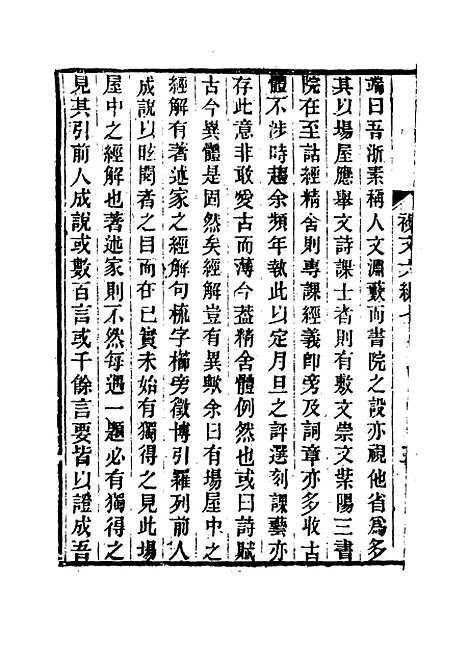 襍文六編七
端曰吾浙素稱人文淵藪而書院之設亦視他省爲多
其以場屋應舉文詩課士者則有敷文崇文紫陽三書
院在至詁經精舍則專課經義卽旁及詞章亦多收古
體不涉時趨余頻年執此以定月旦之評選刻課藝亦
存此意非敢愛古而薄今蓋精舍體例然也或曰詩賦
古今異體是固然矣經解豈有異歟余曰有場屋中之
經解有著述家之經解句梳字櫛旁徵博引羅列前人
成說以眩閱者之目而在已實未始有獨得之見此場
屋中之經解也著述家則不然每遇一題必有獨得之
見其引前人成說或數百言或千餘言要皆以證成吾